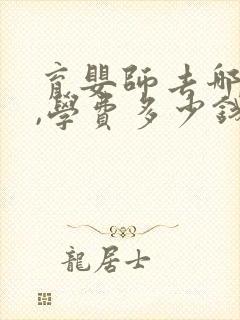 育嬰師去哪
,學費多少錢
龍居士